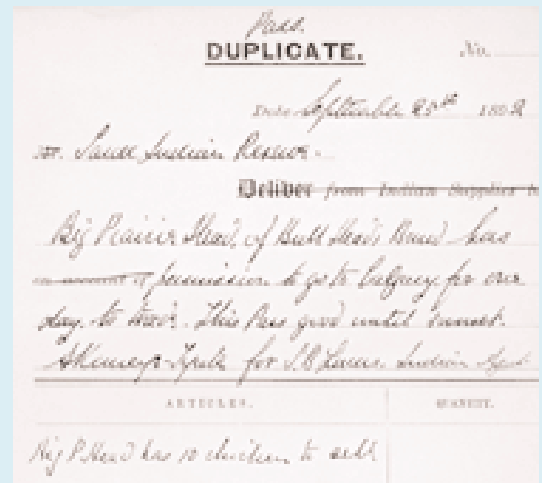 Pass.
DUPLICATE. No.
Date September 20th 1892
Sarcee Indian Reserve.
Deliver from Indian Supplies to
Big Prairie Head, of Bull Heads Band has
on account of permission to go to Calgary for one
day to trade. This Pass good until sunset.
for S.B. Lucas. Indian Agent
ARTICLES. QUANTITY.
Big P. Head has 10 chickens to sell